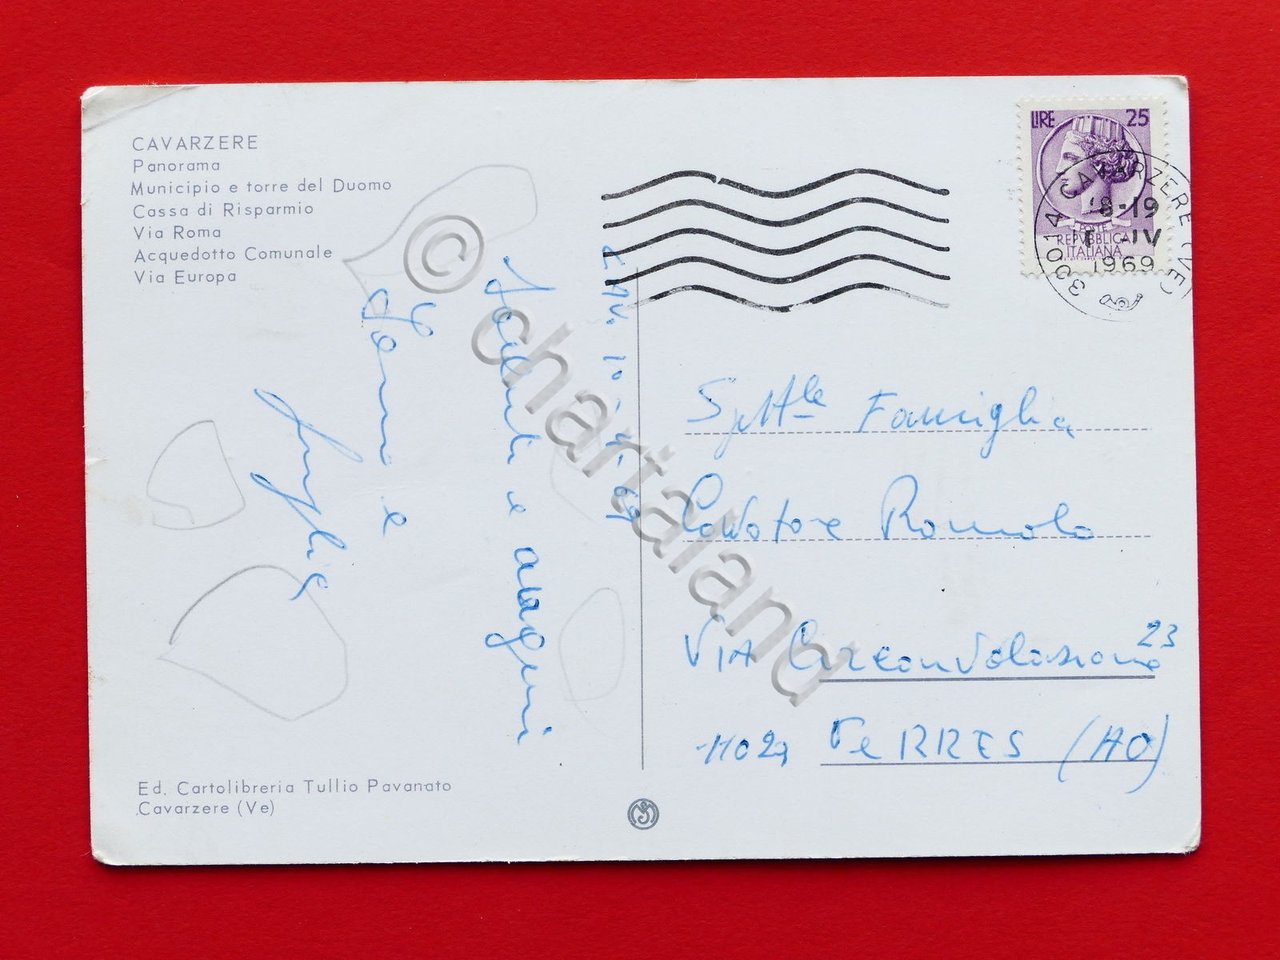 CAVARZERE
Panorama
Municipio e torre del Duomo
Cassa di Risparmio
Via Roma
Acquedotto Comunale
Via Europa
LIRE 25
POSTE
REPVBBLICA
ITALIANA
30014 CAVARZERE (VE)
18-19
IV
1969
© chartaland
Saluti e auguri
e
famiglia
Spett.le Famiglia
Salvatore Romolo
VIA Circonvolazione 23
11029 VeRRES (AO)
Ed. Cartolibreria Tullio Pavanato
Cavarzere (Ve)